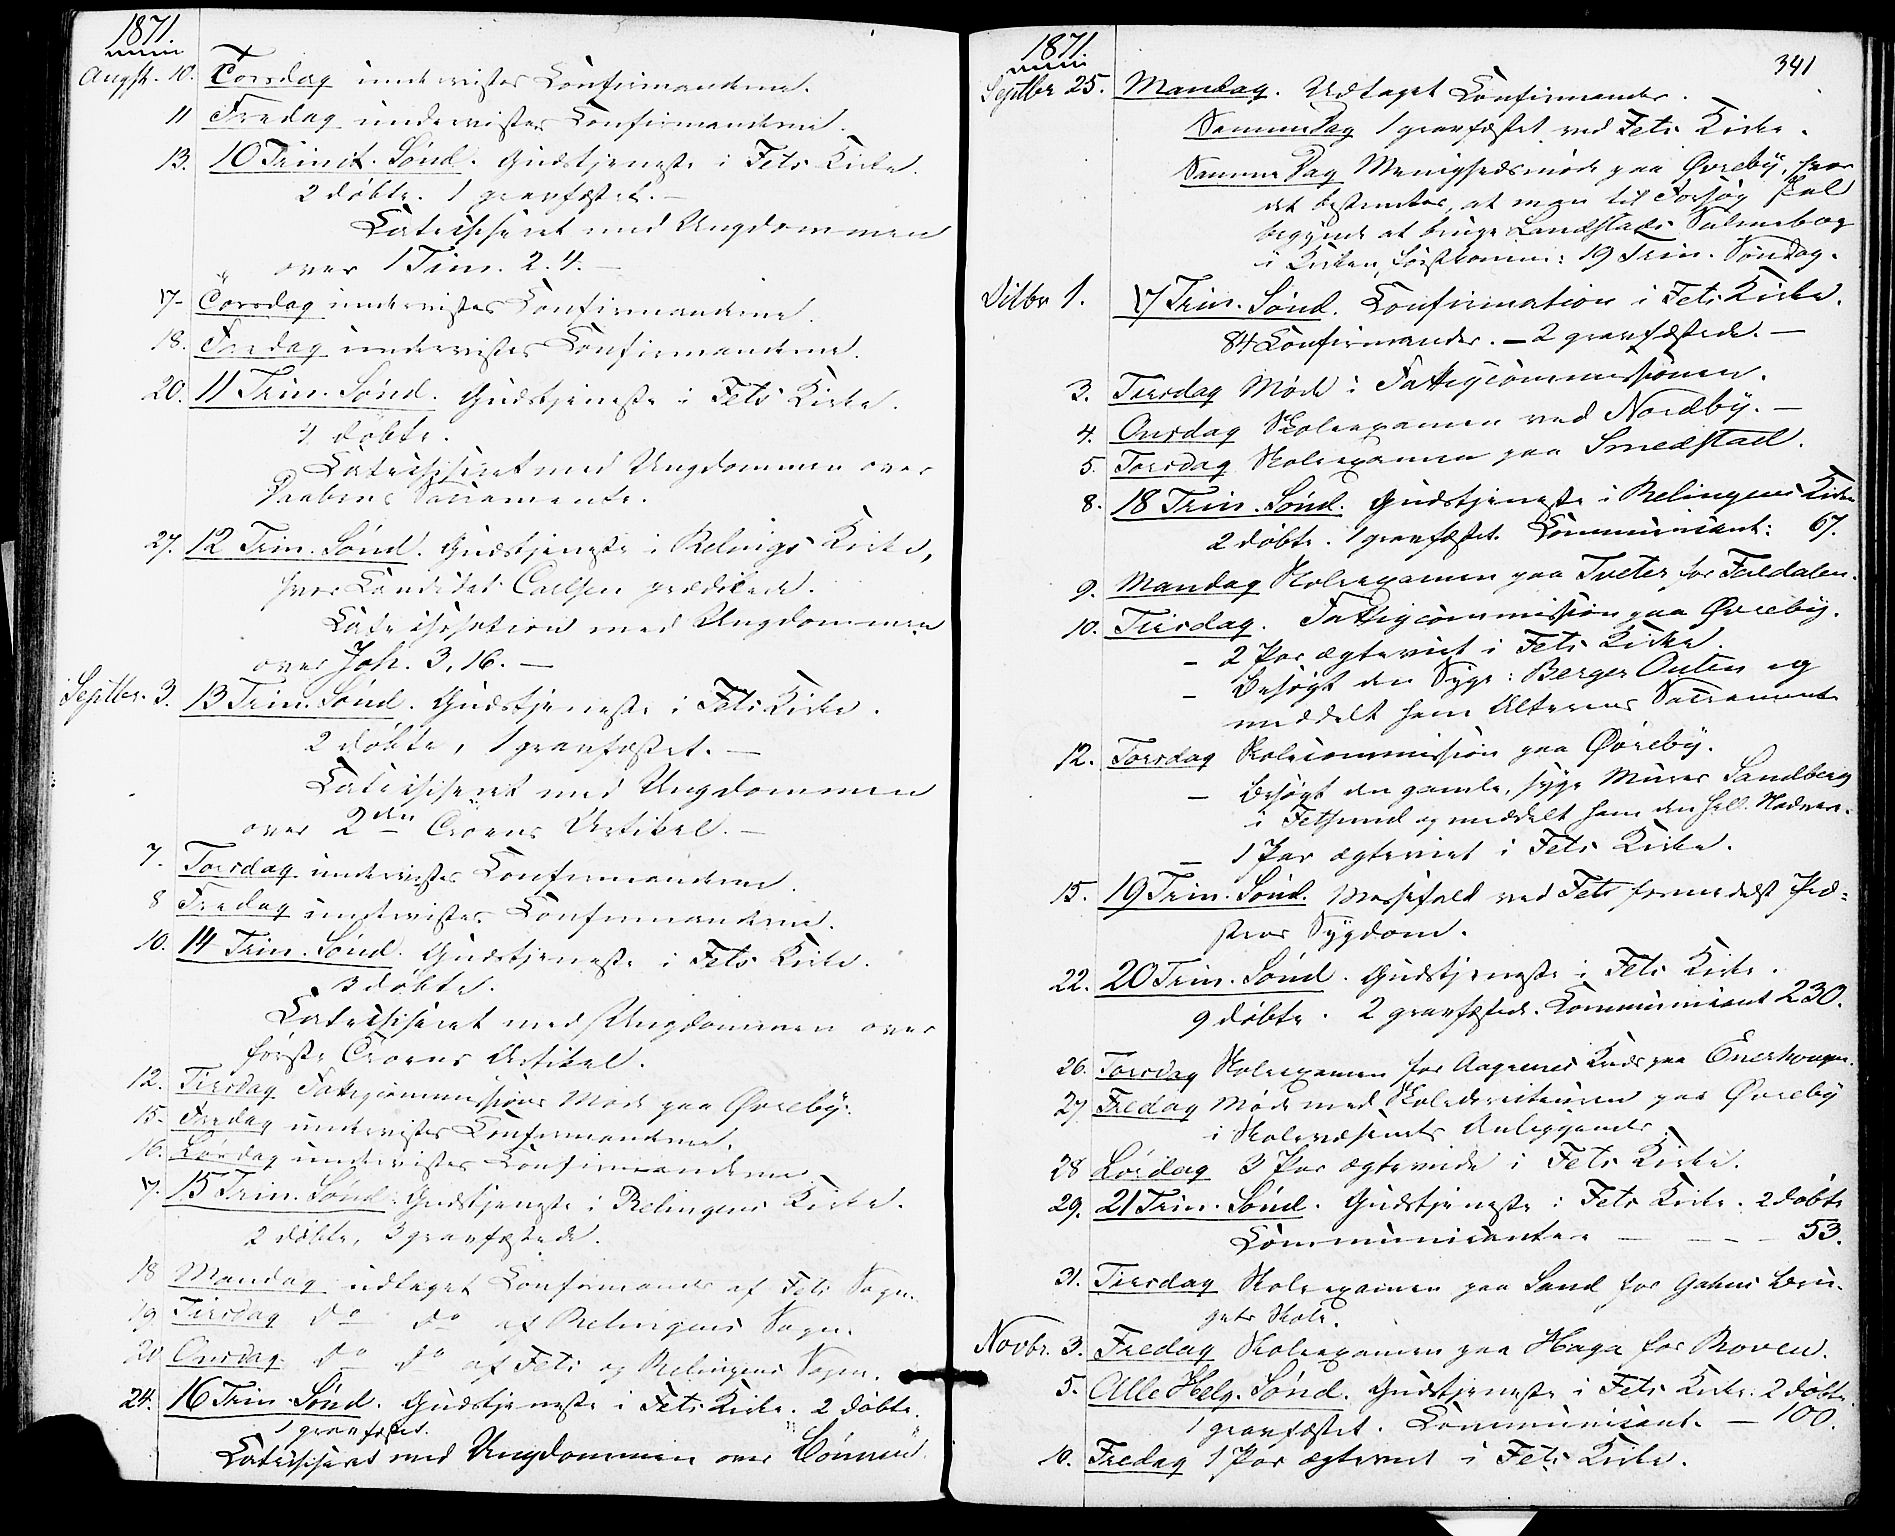 1871.
Augst. 10. Torsdag undervistes Confirmanderne.
11 Fredag undervistes Confirmanderne.
13. 10 Trinit. Sønd. Gudstjeneste i Fets Kirke.
2 døbte. 1 gravfæstet. —
Catechiseret med Ungdommen
over 1 Tim. 2.4. —
17. Torsdag undervistes Confirmanderne.
18. Fredag undervistes Confirmanderne.
20. 11 Trin. Sønd. Gudstjeneste i Fets Kirke.
4 døbte.
Catechiseret med Ungdommen over
Daabens Sacramente.
27. 12 Trin. Sønd. Gudstjeneste i Relings Kirke,
hvor Candidat Carlsen prædikede.
Catechisation med Ungdommen
over Joh. 3, 16. —
Septbr. 3. 13 Trin. Sønd. Gudstjeneste i Fets Kirke.
2 døbte, 1 gravfæstet. —
Catechiseret med Ungdommen
over 2den Troens Artikel. —
7. Torsdag undervistes Confirmanderne.
8 Fredag undervistes Confirmanderne.
10. 14 Trin. Sønd. Gudstjeneste i Fets Kirke.
3 døbte.
Catechiseret med Ungdommen over
første Troens Artikel.
12. Tirsdag Fattigcommissions Møde paa Øvreby.
15. Fredag undervistes Confirmanderne.
16. Lørdag undervistes Confirmanderne.
17. 15 Trin. Sønd. Gudstjeneste i Relingens Kirke.
2 døbte, 3 gravfæstede.
18 Mandag udtaget Confirmander af Fets Sogn.
19 Tirsdag do do af Relingens Sogn.
20 Onsdag do do af Fets og Relingens Sogn.
24. 16 Trin. Sønd. Gudstjeneste i Fets Kirke. 2 døbte.
1 gravfæstet.
Catechiseret med Ungdommen over "Bønnen".
1871.
341
Septbr 25. Mandag. Udtaget Confirmander.
Samme Dag 1 gravfæstet ved Fets Kirke.
Samme Dag Menighedsmøde paa Øvreby, hvor
det bestemtes, at man til Forsøg skal
begynde at bruge Landstads Salmebog
i Kirken, førstkomm: 19 Trin. Søndag.
Octbr 1. 17 Trin. Sønd. Confirmation i Fets Kirke.
84 Confirmander. — 2 gravfæstede. —
3. Tirsdag Møde i Fattigcommissionen.
4. Onsdag Skoleexamen ved Nordby. —
5. Torsdag Skoleexamen paa Smedstad.
8. 18 Trin. Sønd. Gudstjeneste i Relingens Kirke
2 døbte. 1 gravfæstet. Communicant: 67.
9. Mandag Skoleexamen paa Tveter for Faldalen.
10. Tirsdag. Fattigcommission paa Øvreby.
– 2 Par ægteviet i Fets Kirke.
– Besøgt den Syge: Berger Outen og
meddelt ham Alterens Sacramente
12. Torsdag Skolecommission paa Øvreby.
– Besøgt den gamle, syge Murer Sandberg
i Fetsund og meddelt ham den hell. Nadver.
– 1 Par ægteviet i Fets Kirke.
15. 19 Trin. Sønd. Messefald ved Fets formedelst Præ-
stens Sygdom.
22. 20 Trin. Sønd. Gudstjeneste i Fets Kirke.
9 døbte. 2 gravfæstede. Communicant 230.
26. Torsdag Skoleexamen for Aagrenes Kreds paa Enerhougen.
27 Fredag Møde med Skoledirecteuren paa Øvreby
i Skolevæsenets Anliggender.
28 Lørdag 3 Par ægteviede i Fets Kirke.
29. 21 Trin. Sønd. Gudstjeneste i Fets Kirke. 2 døbte
Communicanter — — — 53.
31. Tirsdag Skoleexamen paa Sand for
gets Skole.
Novbr. 3. Fredag Skoleexamen paa Haga for Roven.
5. Alle Helg. Sønd. Gudstjeneste i Fets Kirke. 2 døbte.
1 gravfæstet. Communicant. — 100.
10. Fredag 1 Par ægteviet i Fets Kirke.